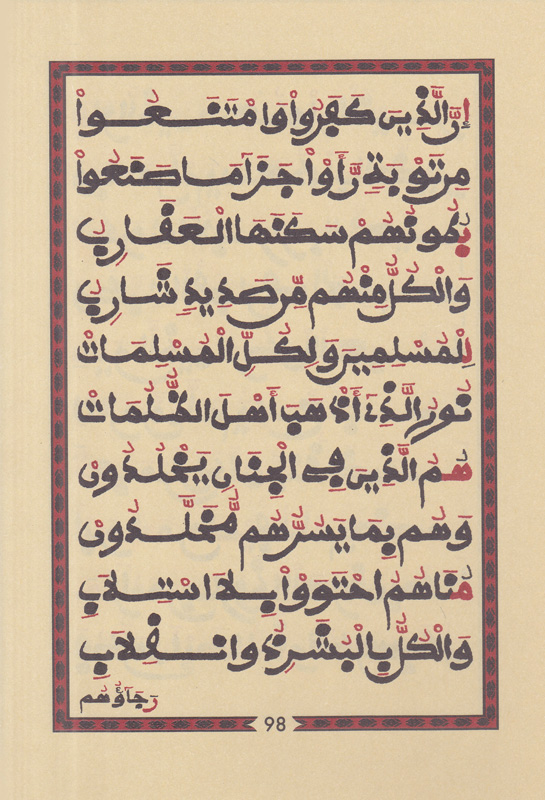 إن الذين كفروا وامتنعوا
من توبة رأوا جزا ما صنعوا
بطونهم سكنها العقارب
والكل منهم من صديد شارب
للمسلمين ولكل المسلمات
نور الذي أذهب أهل الظلمات
هم الذين في الجنان يخلدون
وهم بما يسرهم مخلدون
مناهم احتووا بلا استلاب
والكل بالبشر ذو انقلاب
رجاؤهم
98